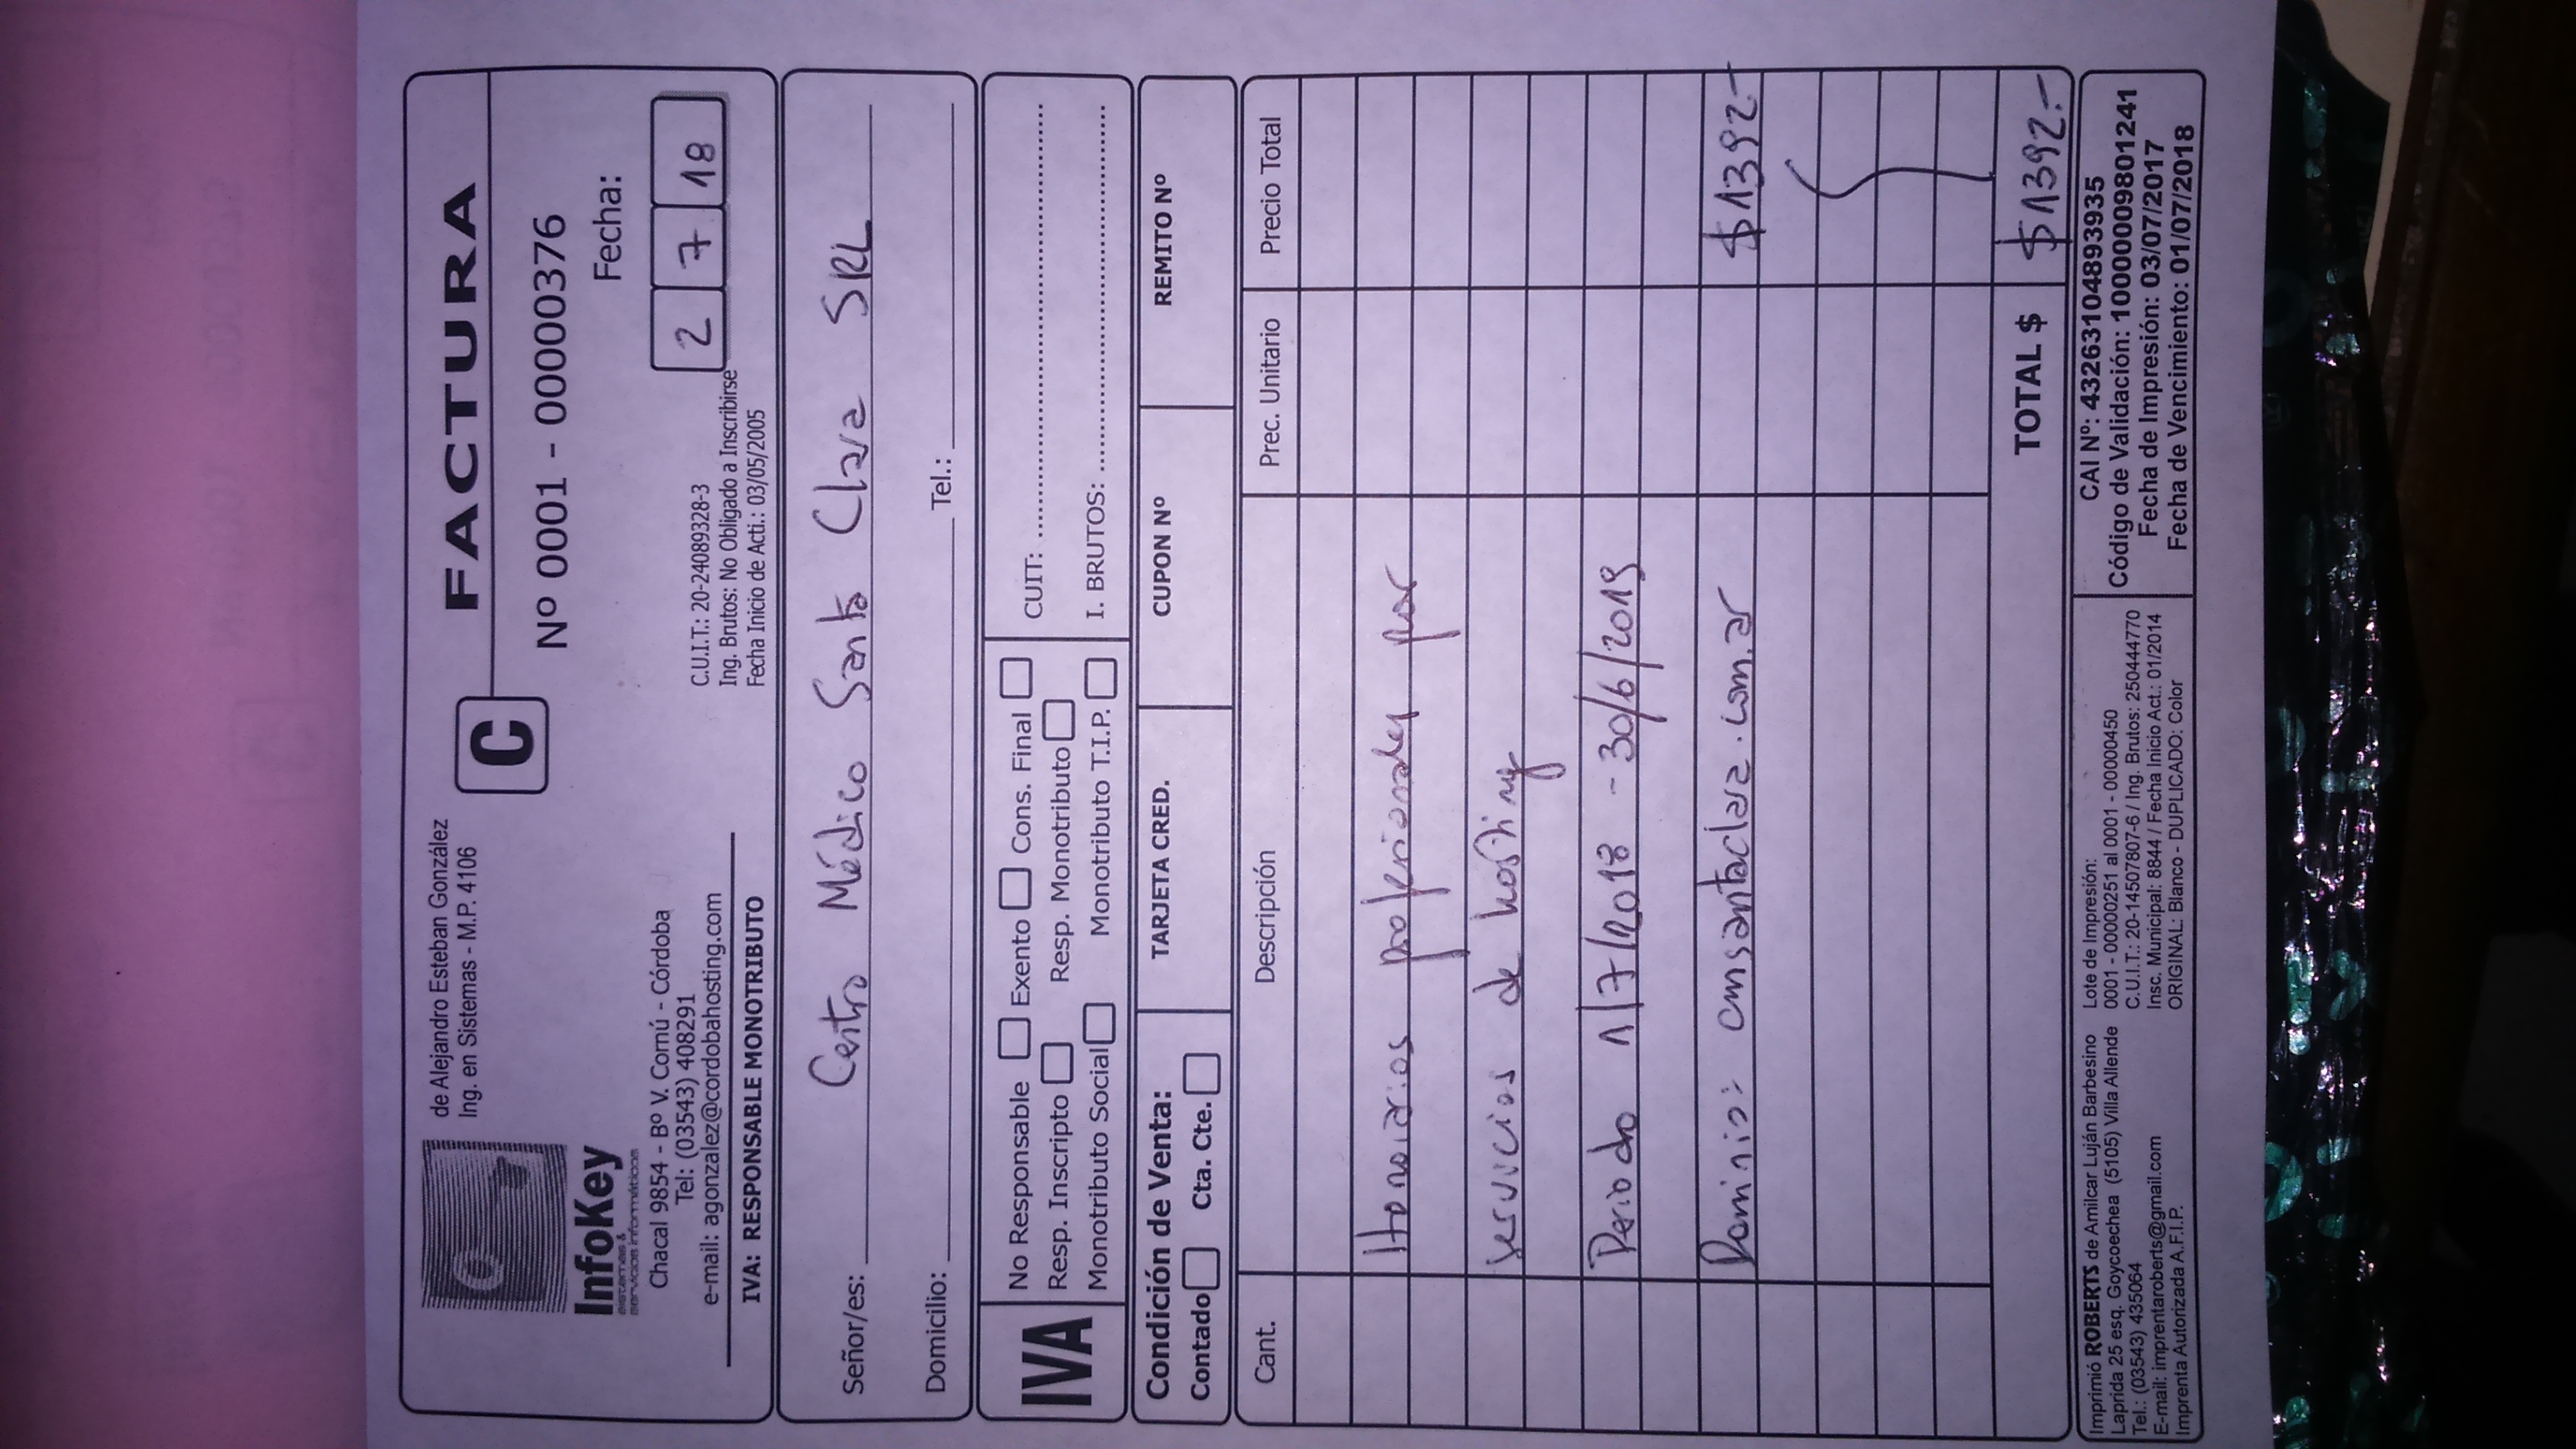 de Alejandro Esteban González
Ing. en Sistemas - M.P. 4106
InfoKey
sistemas &
servicios informáticos
Chacal 9854 - Bº V. Cornú - Córdoba
Tel: (03543) 408291
e-mail: agonzalez@cordobahosting.com
IVA: RESPONSABLE MONOTRIBUTO
C
FACTURA
Nº 0001 - 00000376
Fecha:
2 7 18
C.U.I.T.: 20-24089328-3
Ing. Brutos: No Obligado a Inscribirse
Fecha Inicio de Acti.: 03/05/2005
Señor/es: Centro Médico Santa Clara SRL
Domicilio: Tel.:
IVA
No Responsable Exento Cons. Final
Resp. Inscripto Resp. Monotributo
Monotributo Social Monotributo T.I.P.
CUIT:
I. BRUTOS:
Condición de Venta:
Contado Cta. Cte.
TARJETA CRED.
CUPON Nº
REMITO Nº
Cant. Descripción Prec. Unitario Precio Total
Honorarios profesionales por
servicios de hosting
Periodo 1/7/2018 - 30/6/2019
Dominio: cmsantaclara.com.ar $1392.-
TOTAL $ $1392.-
Imprimió ROBERTS de Amilcar Luján Barbesino
Laprida 25 esq. Goycoechea (5105) Villa Allende
Tel.: (03543) 435064
E-mail: imprentaroberts@gmail.com
Imprenta Autorizada A.F.I.P.
Lote de Impresión:
0001 - 00000251 al 0001 - 00000450
C.U.I.T.: 20-14507807-6 / Ing. Brutos: 250444770
Insc. Municipal: 8844 / Fecha Inicio Act.: 01/2014
ORIGINAL: Blanco - DUPLICADO: Color
CAI Nº: 43263104893935
Código de Validación: 10000009801241
Fecha de Impresión: 03/07/2017
Fecha de Vencimiento: 01/07/2018